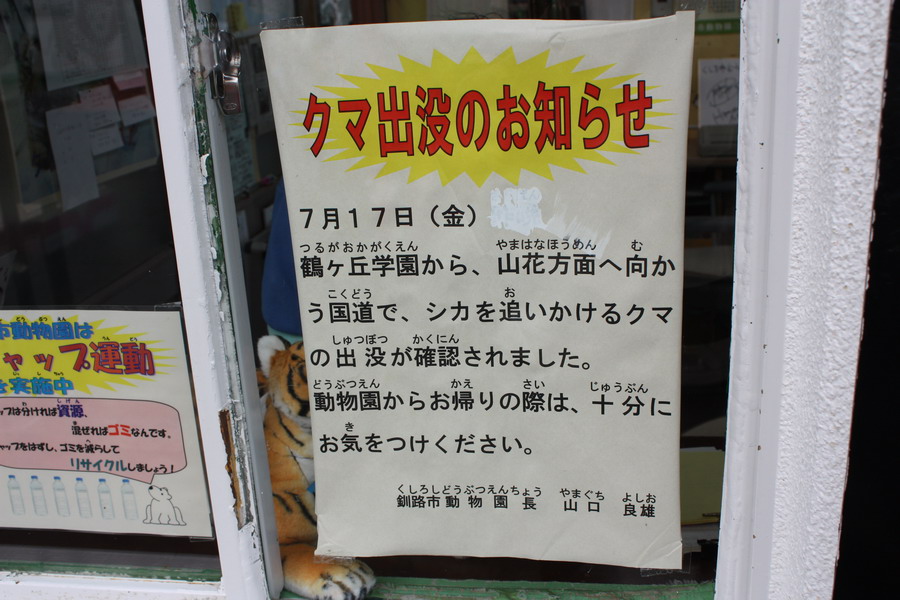 クマ出没のお知らせ
７月１７日（金）
つるがおかがくえん やまはなほうめん む
鶴ヶ丘学園から、山花方面へ向か
こくどう お
う国道で、シカを追いかけるクマ
しゅつぼつ かくにん
の出没が確認されました。
どうぶつえん かえ さい じゅうぶん
動物園からお帰りの際は、十分に
き
お気をつけください。
くしろしどうぶつえんちょう やまぐち よしお
釧路市動物園長 山口 良雄
市動物園は
ャップ運動
を実施中
ップは分ければ資源、
混ぜればゴミなんです。
ャップをはずし、ゴミを減らして
リサイクルしましょう！